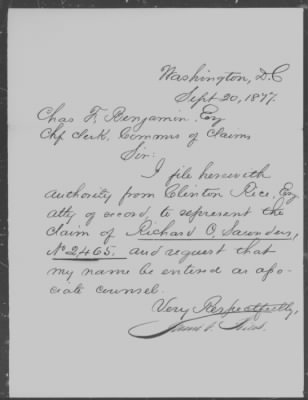 Washington, D.C
Sept 20, 1877.
Chas F. Benjamin, Esq
Chf Clerk, Comms of Claims
Sir:
I file herewith
authority from Clinton Rice, Esq
atty of record, to represent the
claim of Richard C. Saunders,
No 2465. and request that
my name be entered as asso-
ciate counsel.
Very Respectfully,